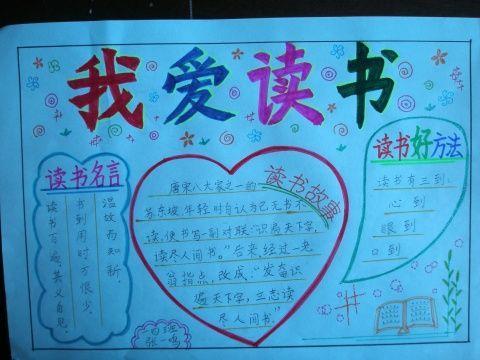 我爱读书
读书名言
温故而知新，
书到用时方恨少，
读书百遍，其义自见。
读书故事
唐宋八大家之一的
苏东坡年轻时自认为己无书不
读，便书写一副对联:"识遍天下字，
读尽人间书。"后来，经过一老
翁指点，改成，"发奋识
遍天下字，立志读
尽人间书。"
读书好方法
读书有三到：
心到
眼到
口到
张一鸣